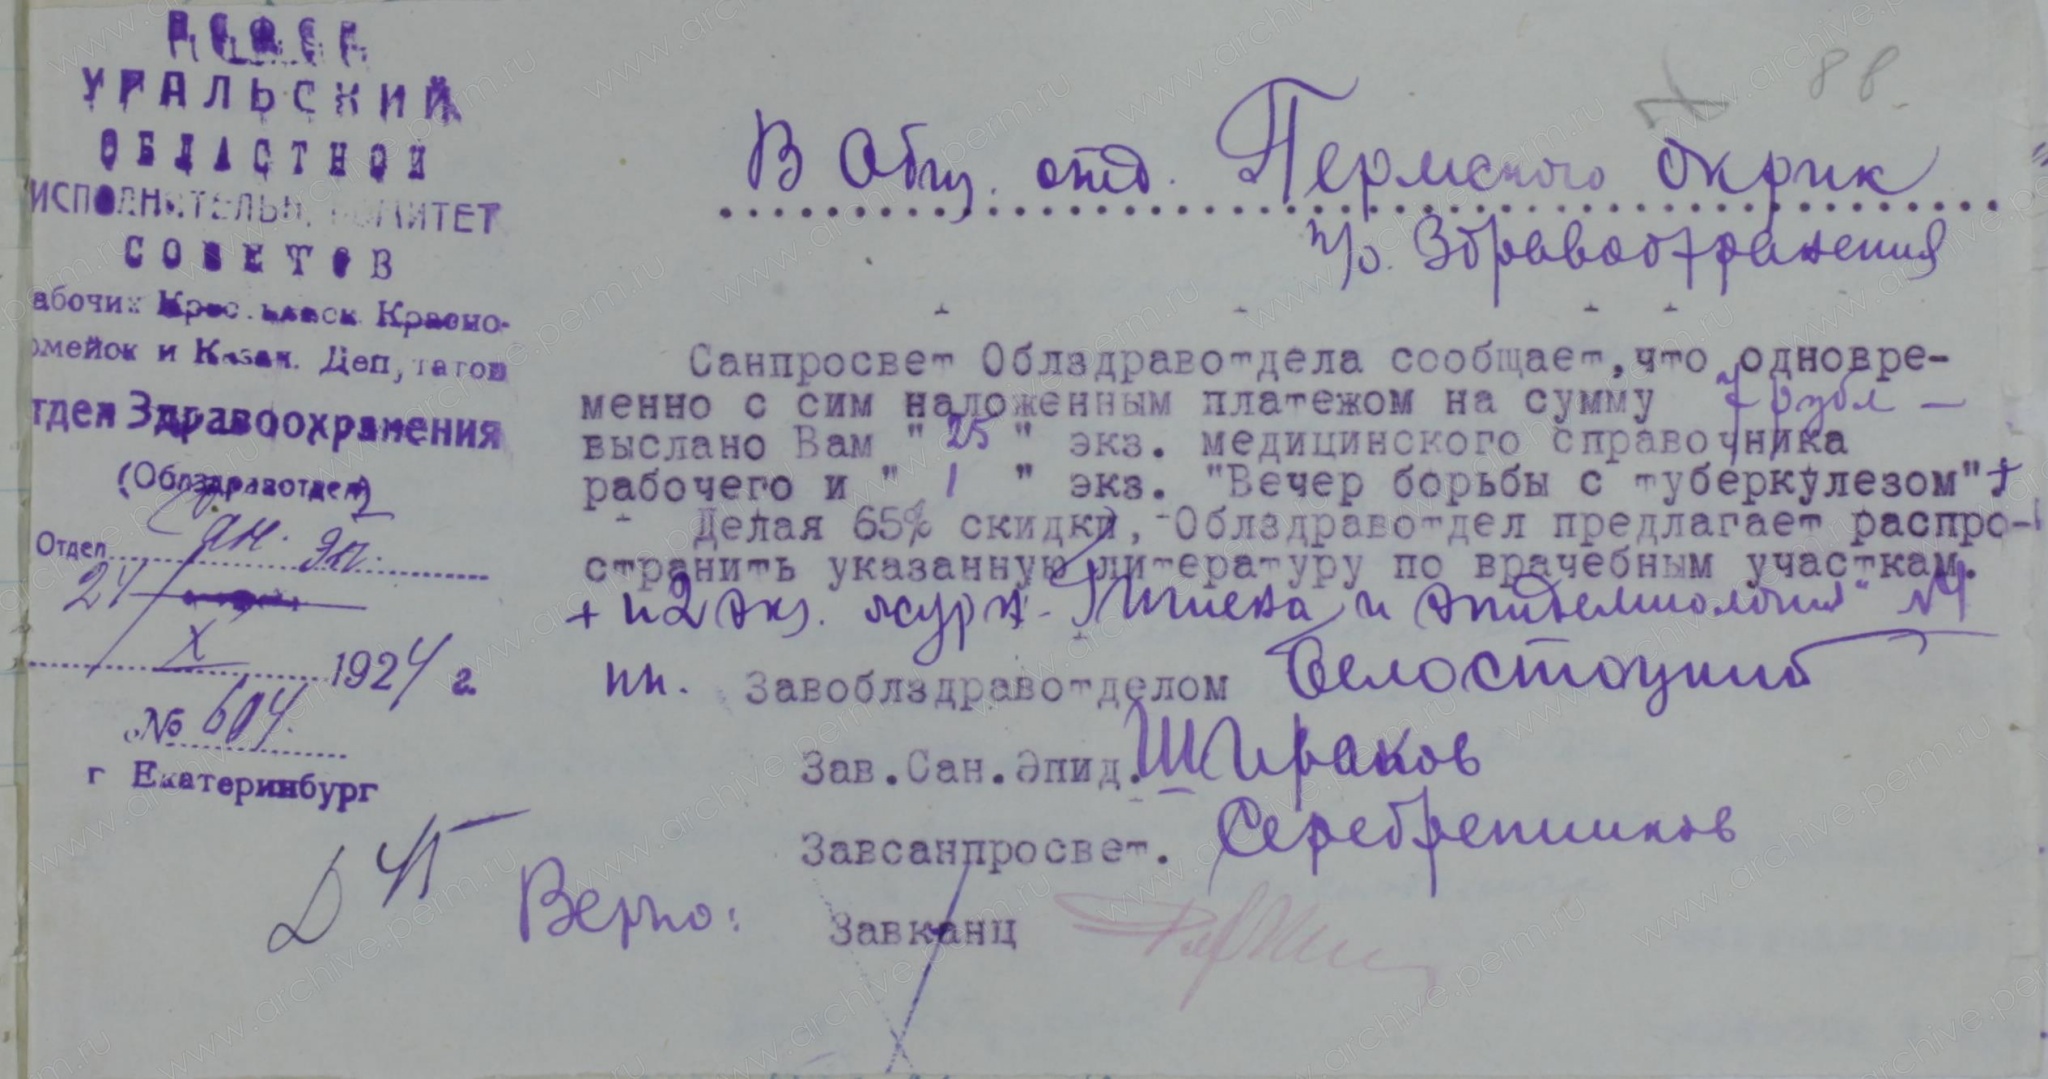 Р.С.Ф.С.Р.
УРАЛЬСКИЙ
ОБЛАСТНОЙ
ИСПОЛНИТЕЛЬН. КОМИТЕТ
СОВЕТОВ
абочих Крес. Красно-
рмейск и Казач. Депутатов
тдел Здравоохранения
(Облздравотдел)
Отдел Сан. Эп.
24/X 1924 г.
№ 604.
г Екатеринбург
88.
В Общ. отд. Пермского Окрик
п/о. Здравоохранения
Санпросвет Облздравотдела сообщает, что одновре-
менно с сим наложенным платежом на сумму 7 рубл —
выслано Вам " 25 " экз. медицинского справочника
рабочего и " 1 " экз. "Вечер борьбы с туберкулезом" +
Делая 65% скидки, Облздравотдел предлагает распро-
странить указанную литературу по врачебным участкам.
+ и 2 экз. журн. Гигиена и эпидемиология" №4
пп. Завоблздравотделом Белостоцкий
Зав.Сан.Эпид. Шираков
Завсанпросвет. Серебренников
Верно: Завканц